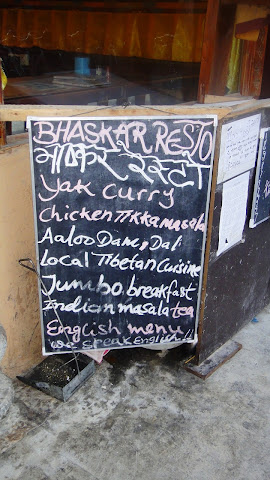 BHASKAR RESTO
भास्कर रेस्टो
Yak Curry
Chicken Tikkamasala
Aaloo Dam, Dal
Local Tibetan Cuisine
Jumbo breakfast
Indian masala tea
English menu
we speak English !!